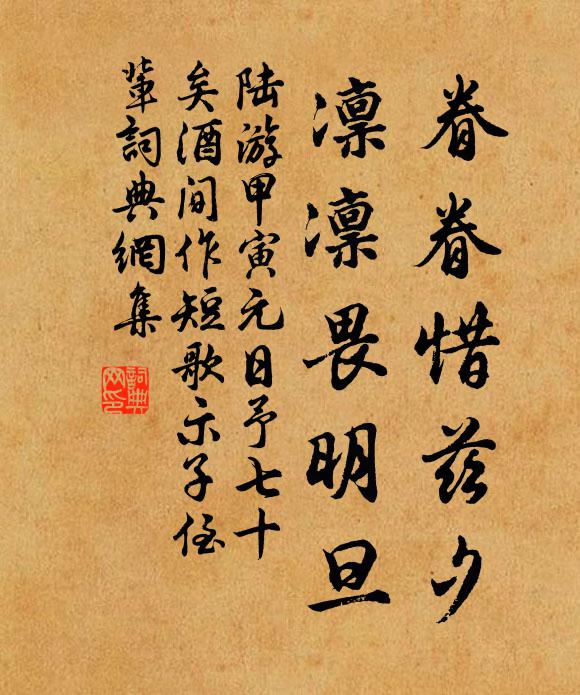 眷眷惜茲夕
凛凛畏明旦
陆游甲寅元日予七十
矣酒间作短歌示子侄
辈詞典網集
詞典
网印